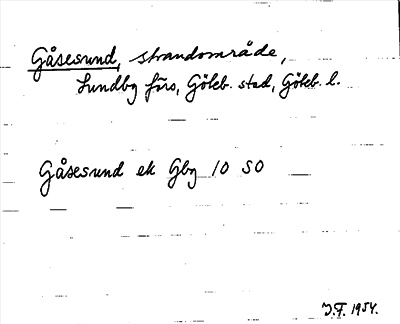 Gåsesund, strandområde,
Lundby förs, Göteb. stad, Göteb. l.
Gåsesund ek Gbg 10 SO
J.F. 1954.